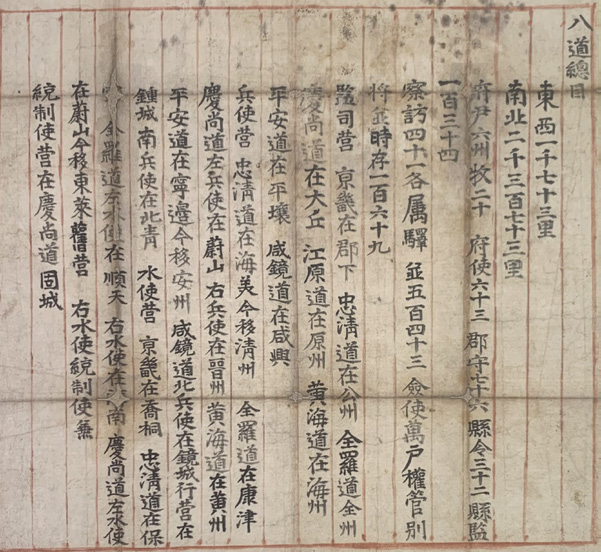 八道總目
東西一千七十三里
南北二千三百七十三里
府尹六州牧二十 府使六十三 郡守七十六 縣令三十二 縣監
一百三十四
察訪四十一各属驛 並五百四十三 僉使萬戶權管別
將並時存一百六十九
監司营 京畿在郡下 忠清道在公州 全羅道全州
慶尚道在大丘 江原道在原州 黃海道在海州
平安道在平壤 咸鏡道在咸興
兵使营 忠清道在海美今移清州 全羅道在康津
慶尚道左兵使在蔚山 右兵使在晉州 黃海道在黃州
平安道在寧邊今移安州 咸鏡道北兵使在鏡城行营在
鍾城 南兵使在北青 水使营 京畿在喬桐 忠清道在保
全羅道左水使在順天 右水使在 南 慶尚道左水使
在蔚山今移東萊舊营 右水使統制使無
統制使营在慶尚道固城